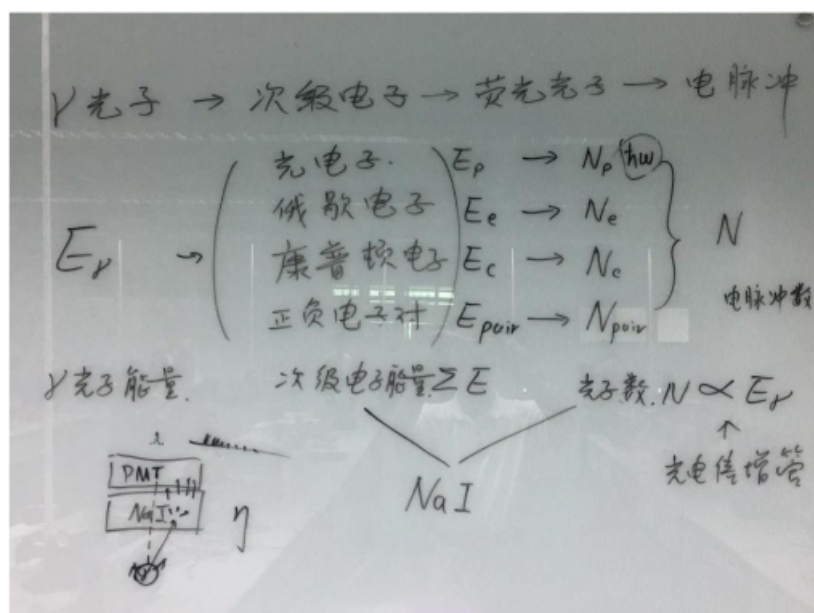 γ光子 → 次级电子 → 荧光光子 → 电脉冲
光电子. Ep → Np ħω
俄歇电子 Ee → Ne
Eγ → 康普顿电子 Ec → Nc } N
正负电子对 Epair → Npair 电脉冲数
γ光子能量. 次级电子能量ΣE 光子数. N ∝ Eγ
↑
光电倍增管
NaI
PMT
NaI η